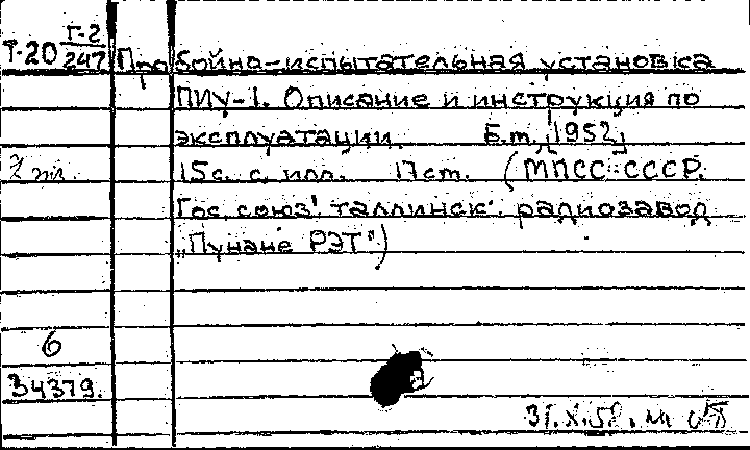 Т-20 Т-2
247
Пробойно-испытательная установка
ПИУ-1. Описание и инструкция по
эксплуатации. Б.т, [1952]
2 эк. 15с. с илл. 17ст. (МПСС СССР.
Гос. союз. таллинск. радиозавод
„Пунане РЭТ")
6
34379.
31.X.52.